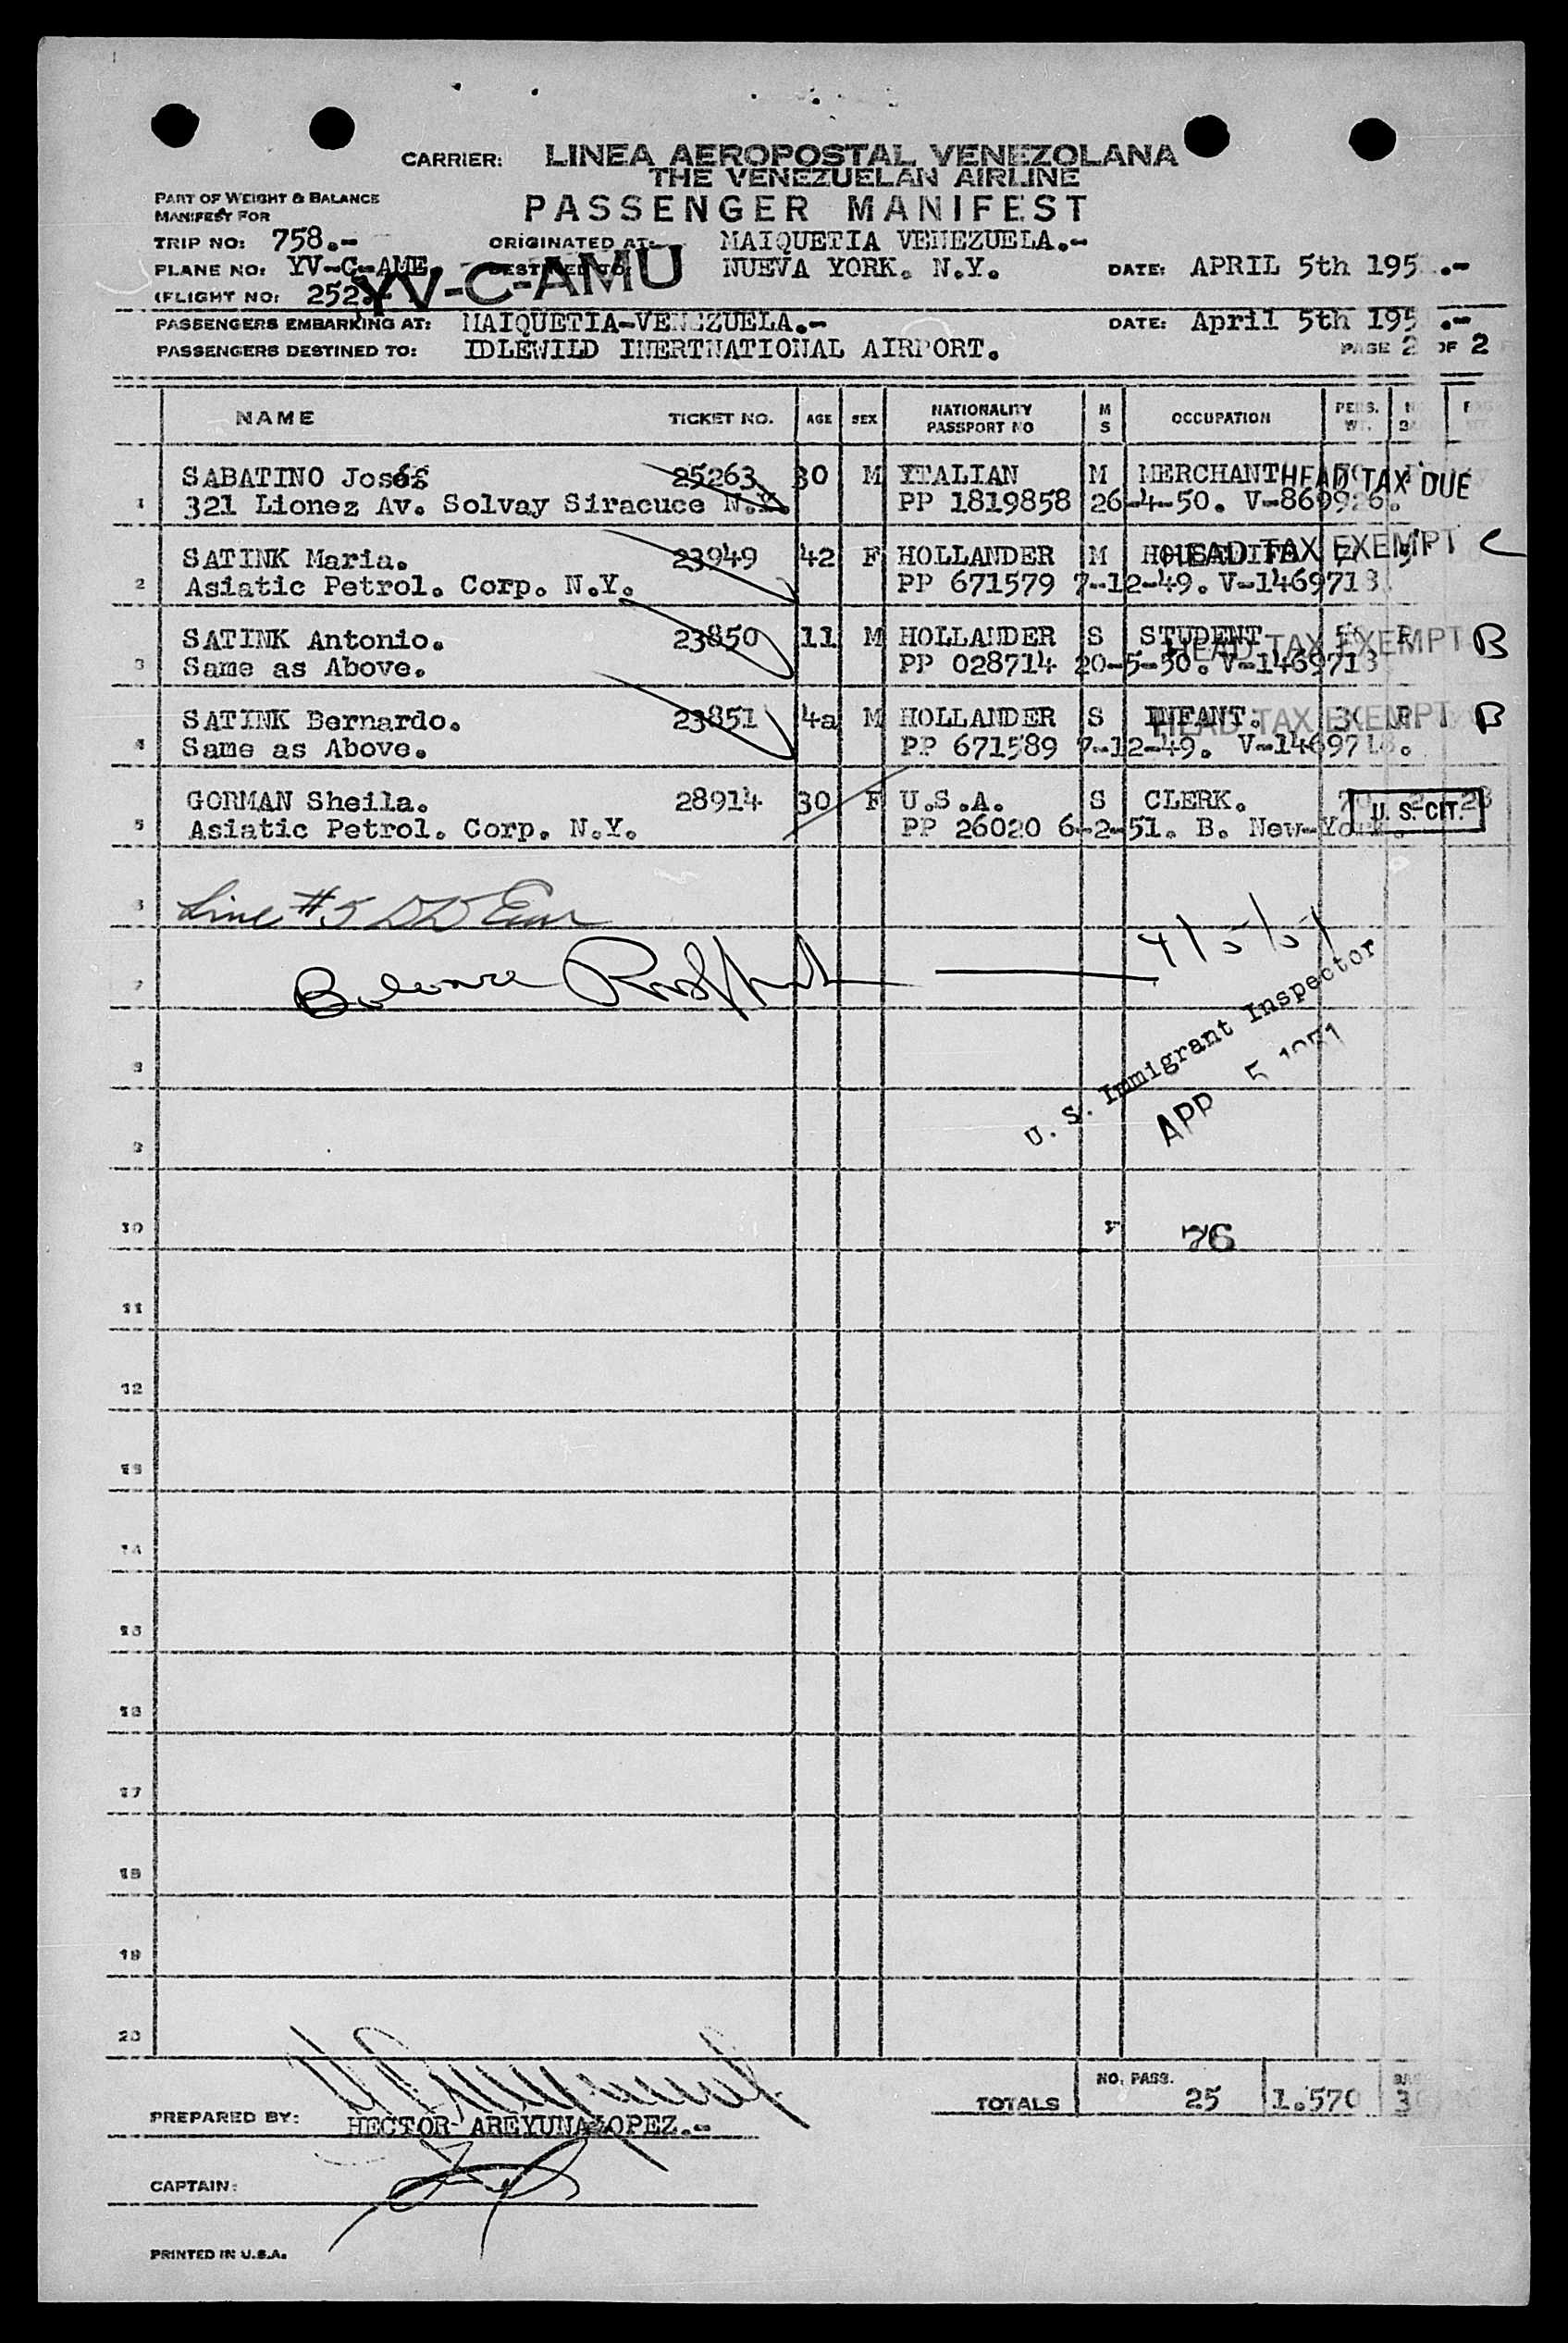 CARRIER: LINEA AEROPOSTAL VENEZOLANA
THE VENEZUELAN AIRLINE
PART OF WEIGHT & BALANCE
MANIFEST FOR
PASSENGER MANIFEST
TRIP NO: 758.- ORIGINATED AT: MAIQUETIA VENEZUELA.-
PLANE NO: YV-C-AME YV-C-AMU NUEVA YORK. N.Y. DATE: APRIL 5th 195 .-
FLIGHT NO: 252.-
PASSENGERS EMBARKING AT: MAIQUETIA-VENEZUELA.- DATE: April 5th 195 .-
PASSENGERS DESTINED TO: IDLEWILD INERTNATIONAL AIRPORT. PAGE 2 OF 2
NAME TICKET NO. AGE SEX NATIONALITY PASSPORT NO M S OCCUPATION PERS. WT.
1 SABATINO José 25263 30 M YTALIAN M MERCHANT HEAD TAX DUE
321 Lionez Av. Solvay Siracuce N.Y. PP 1819858 26-4-50. V-869926.
2 SATINK Maria. 23949 42 F HOLLANDER M HOUSEWIFE HEAD TAX EXEMPT C
Asiatic Petrol. Corp. N.Y. PP 671579 7-12-49. V-1469713.
3 SATINK Antonio. 23850 11 M HOLLANDER S STUDENT HEAD TAX EXEMPT B
Same as Above. PP 028714 20-5-50. V-1469713
4 SATINK Bernardo. 23851 4a M HOLLANDER S INFANT. HEAD TAX EXEMPT B
Same as Above. PP 671589 7-12-49. V-14697
5 GORMAN Sheila. 28914 30 F U.S.A. S CLERK. U. S. CIT.
Asiatic Petrol. Corp. N.Y. PP 26020 6-2-51. B. New-York.
6 Line #5
7 4/5/51
U. S. Immigrant Inspector
8 APR 5 1951
9
10 76
11
12
13
14
15
16
17
18
19
20
TOTALS NO. PASS. 25 1.570
PREPARED BY: HECTOR AREYUNA LOPEZ.-
CAPTAIN:
PRINTED IN U.S.A.